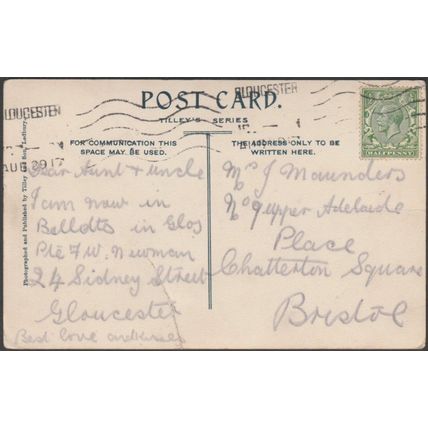 POST CARD.
TILLEY'S SERIES
GLOUCESTER
GLOUCESTER
AUG 29 17
HALFPENNY
FOR COMMUNICATION THIS
SPACE MAY BE USED.
THE ADDRESS ONLY TO BE
WRITTEN HERE.
Photographed and Published by Tilley and Son, Ledbury.
Dear Aunt & uncle
I am now in
Belldts in Glos
Pte F W. Newman
24 Sidney Street
Gloucester
Best love and kisses
Mrs J Maunders
No 9 upper Adelaide
Place
Chatterton Square
Bristol